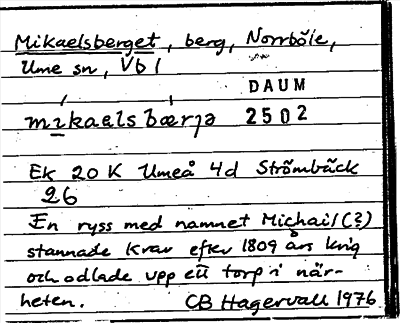 Mikaelsberget, berg, Norrböle,
Ume sn, Vb l
DAUM
mɩkaelsbærjə 2502
Ek 20 K Umeå 4d Strömbäck
26
En ryss med namnet Michail (?)
stannade kvar efter 1809 års krig
och odlade upp ett torp i när-
heten. CB Hagervall 1976